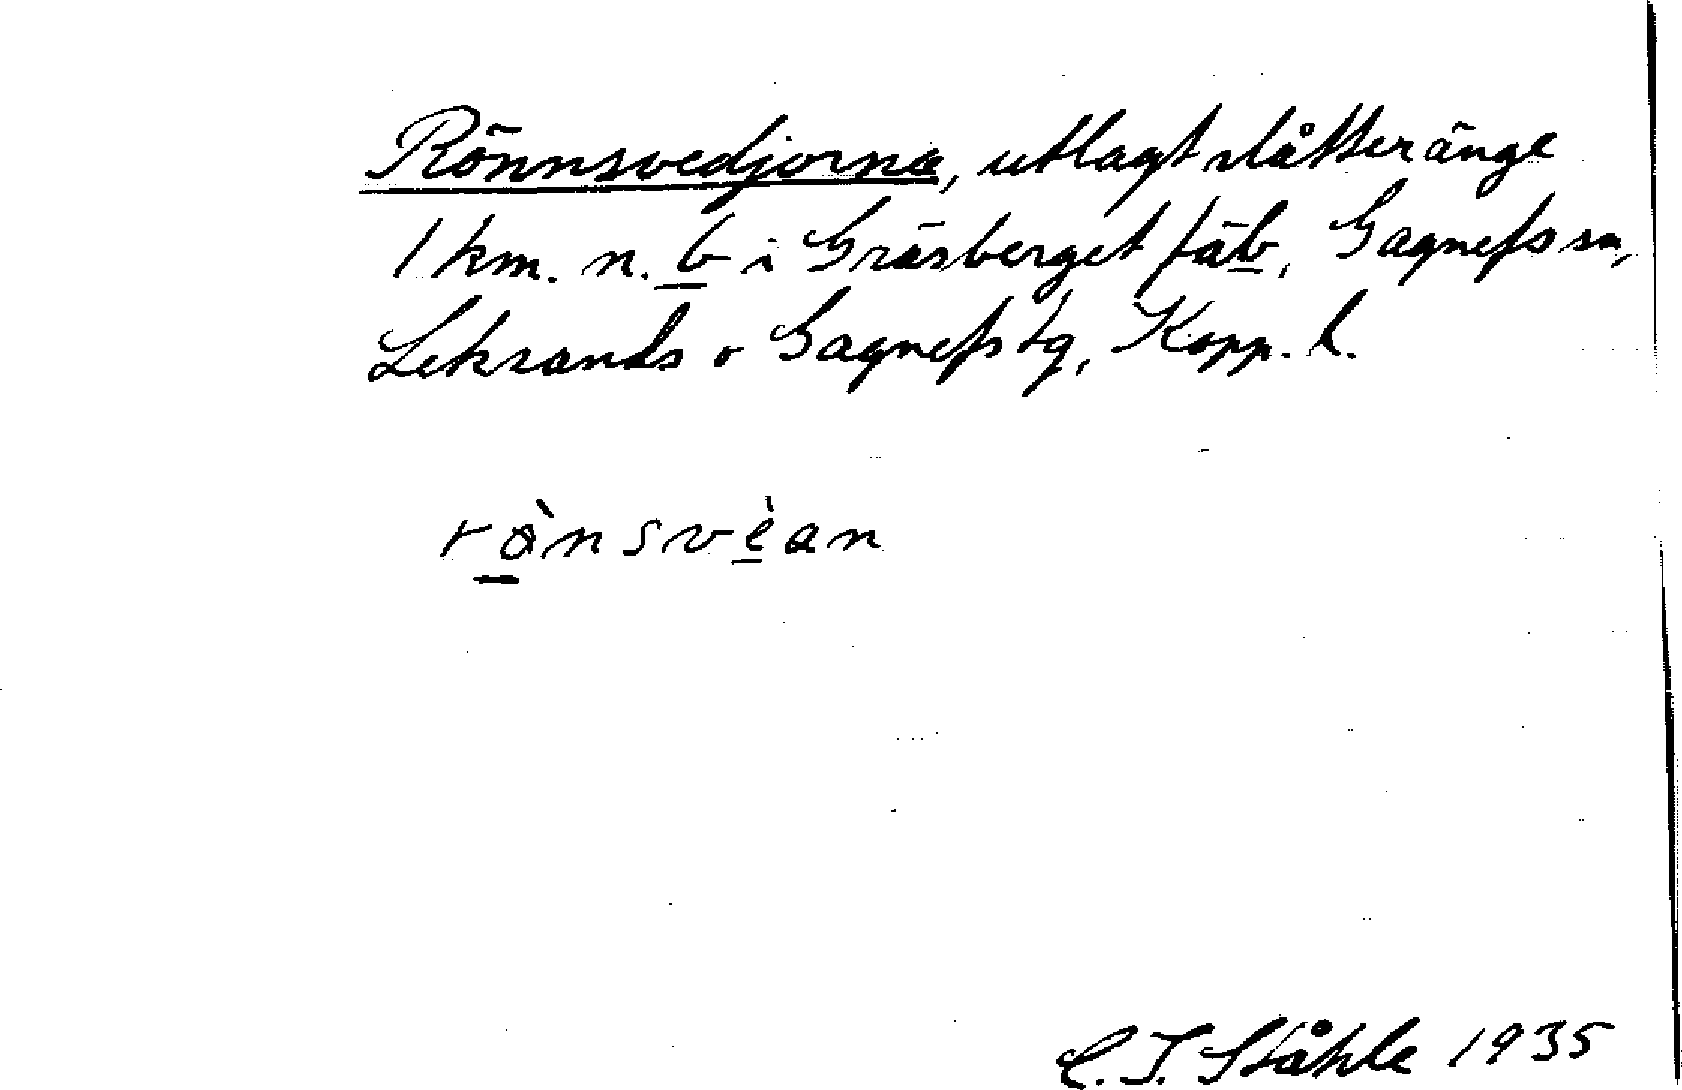 Rönnsvedjorna, utlagt slåtteränge
1 km. n. b i Gräsberget fäb, Gagnefs sn,
Leksands o Gagnefs tg, Kopp. l.
rònsvèan
C. I. Ståhle 1935